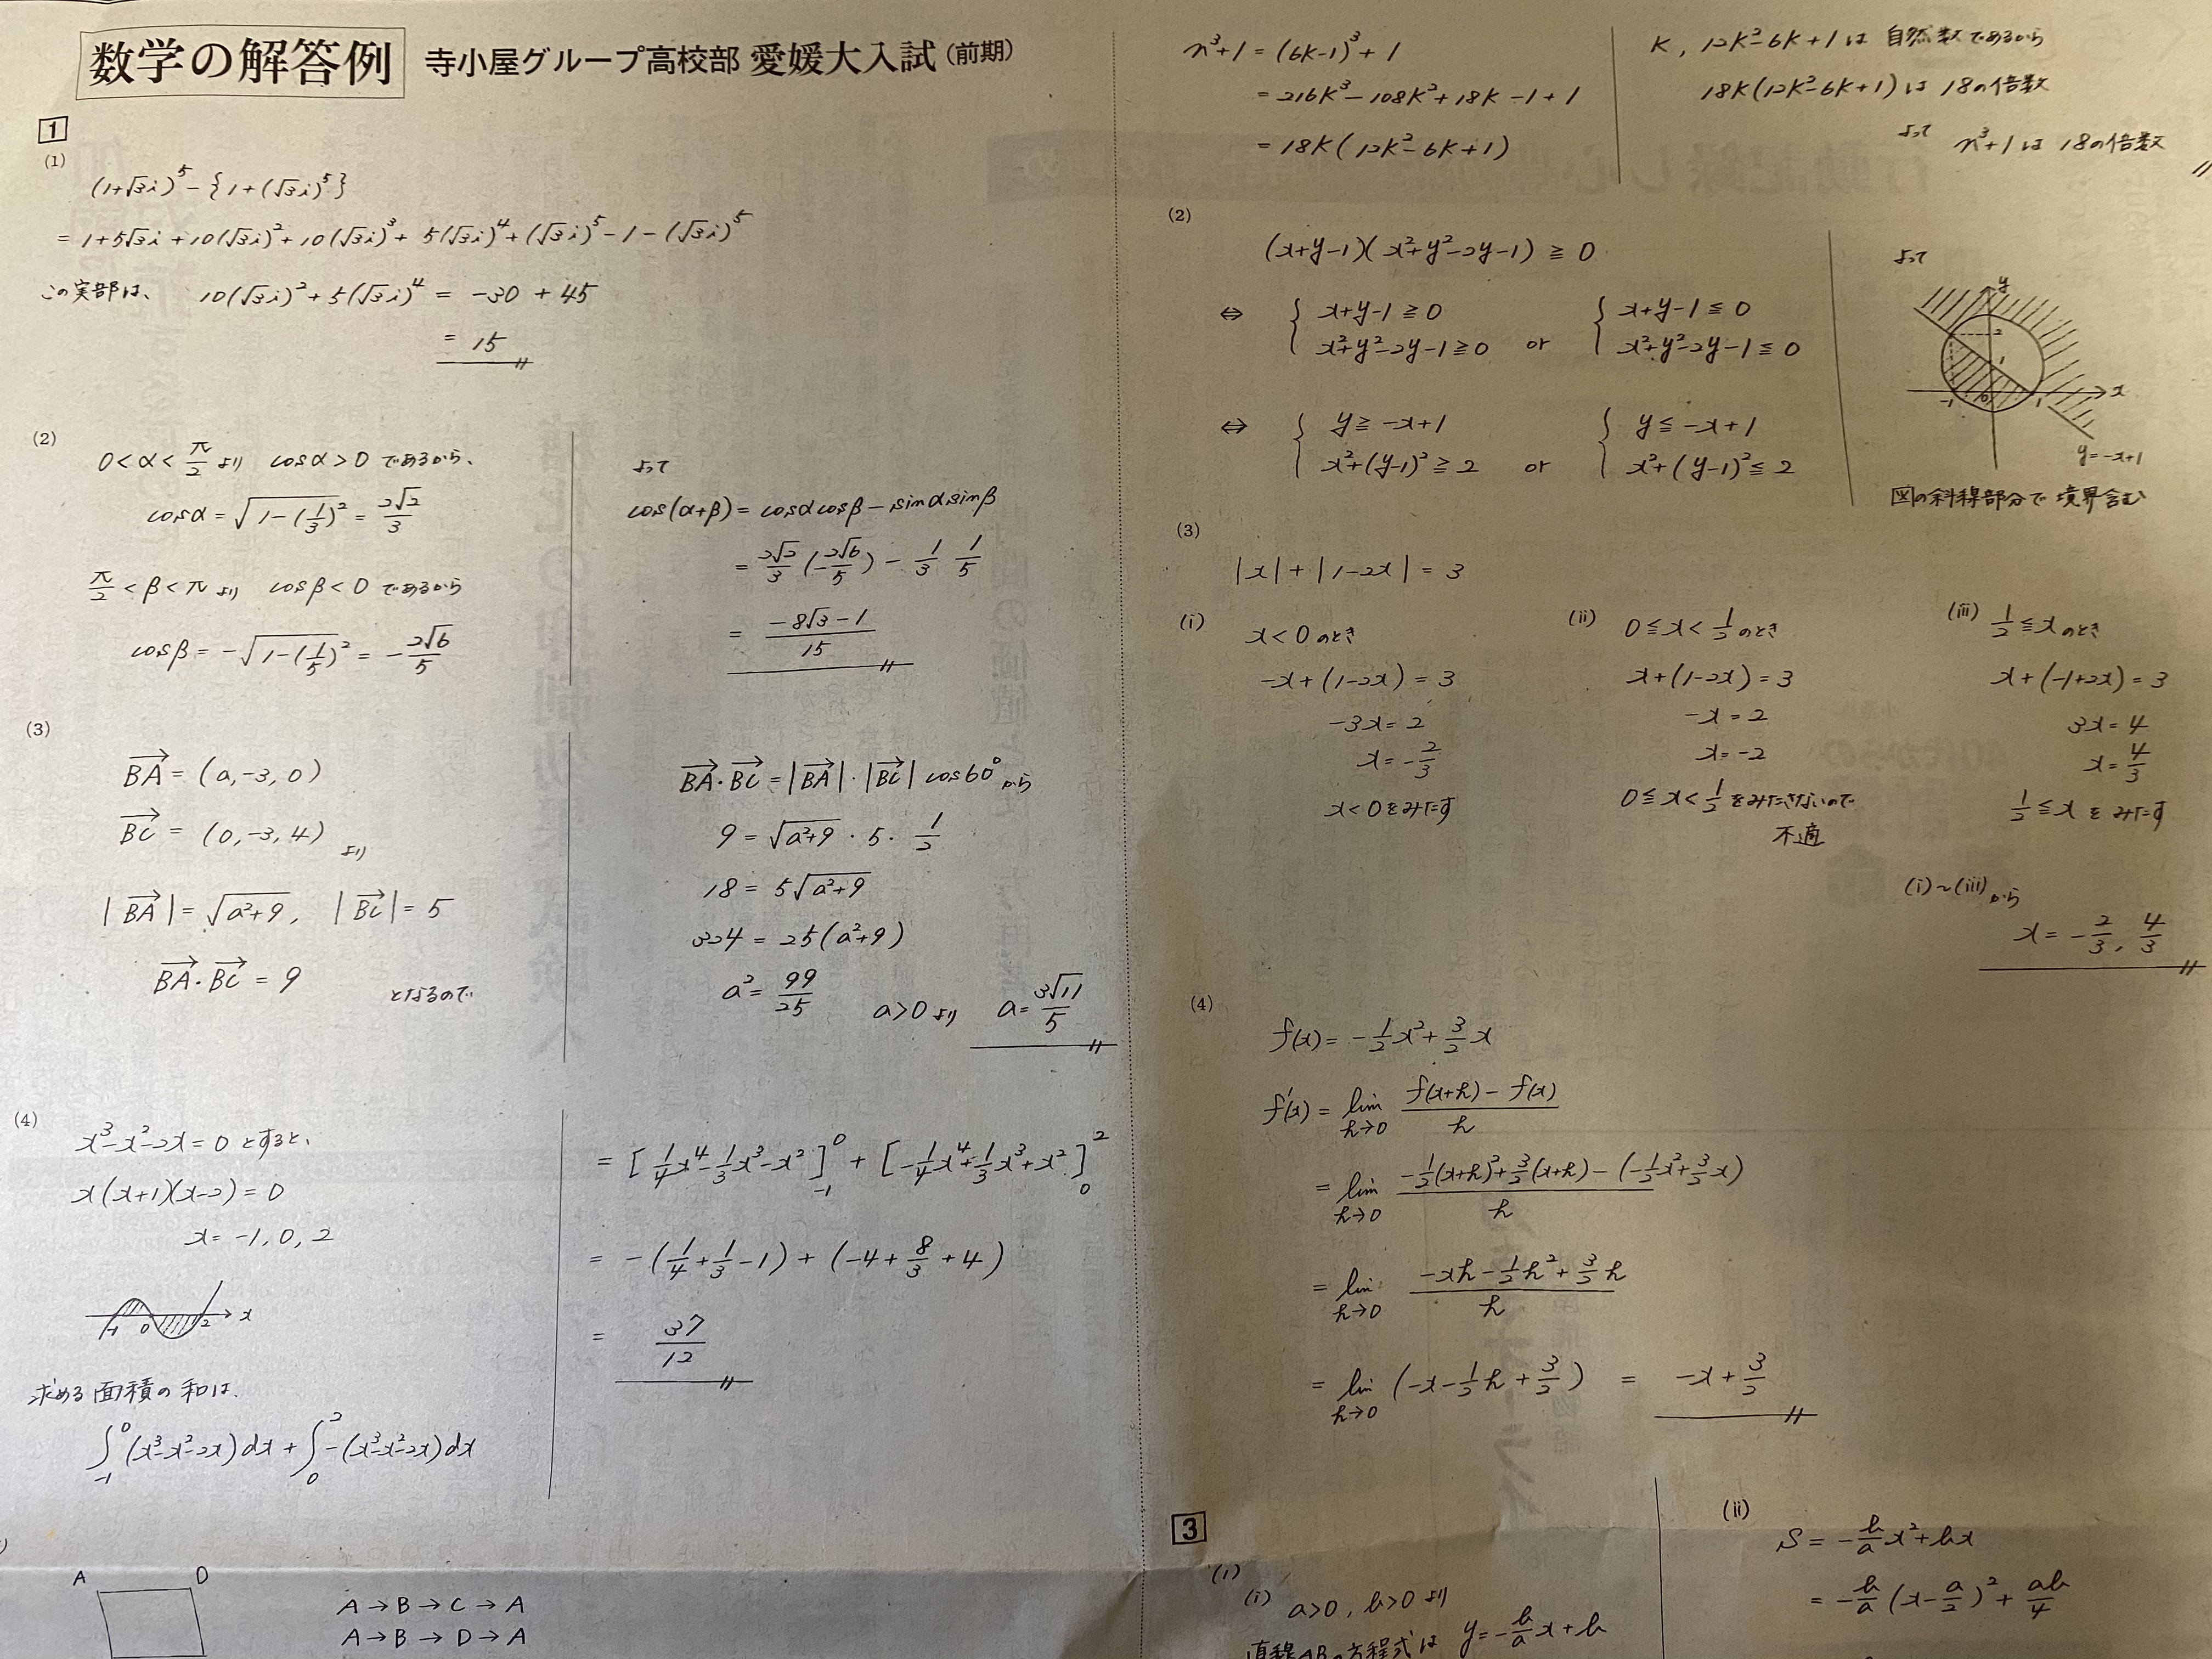 数学の解答例 寺小屋グループ高校部 愛媛大入試(前期)
1
(1)
(1+√3i)^5-{1+(√3i)^5}
=1+5√3i+10(√3i)^2+10(√3i)^3+5(√3i)^4+(√3i)^5-1-(√3i)^5
この実部は、 10(√3i)^2+5(√3i)^4 = -30+45
= 15
(2)
0<α<π/2 より cosα>0 であるから、
cosα=√(1-(1/3)^2)=2√2/3
π/2<β<π より cosβ<0 であるから
cosβ=-√(1-(1/5)^2)=-2√6/5
よって
cos(α+β)=cosαcosβ-sinαsinβ
=2√2/3(-2√6/5)-1/3 1/5
=(-8√3-1)/15
(3)
BA→=(a,-3,0)
BC→=(0,-3,4) より
|BA→|=√(a^2+9), |BC→|=5
BA→・BC→=9 となるので
BA→・BC→=|BA→|・|BC→|cos60° から
9=√(a^2+9)・5・1/2
18=5√(a^2+9)
324=25(a^2+9)
a^2=99/25 a>0 より a=3√11/5
(4)
x^3-x^2-2x=0 とすると、
x(x+1)(x-2)=0
x=-1,0,2
-1 0 2 x
求める面積の和は、
∫_{-1}^{0}(x^3-x^2-2x)dx+∫_{0}^{2}-(x^3-x^2-2x)dx
=[1/4x^4-1/3x^3-x^2]_{-1}^{0}+[-1/4x^4+1/3x^3+x^2]_{0}^{2}
=-(1/4+1/3-1)+(-4+8/3+4)
=37/12
A D
A→B→C→A
A→B→D→A
n^3+1=(6k-1)^3+1
=216k^3-108k^2+18k-1+1
=18k(12k^2-6k+1)
k, 12k^2-6k+1は 自然数であるから
18k(12k^2-6k+1)は 18の倍数
よって n^3+1は 18の倍数
(2)
(x+y-1)(x^2+y^2-2y-1)≧0
⇔ {x+y-1≧0 {x+y-1≦0
x^2+y^2-2y-1≧0 or x^2+y^2-2y-1≦0
⇔ {y≧-x+1 {y≦-x+1
x^2+(y-1)^2≧2 or x^2+(y-1)^2≦2
よって
y
2
1
-1 0 1 x
y=-x+1
図の斜線部分で 境界含む
(3)
|x|+|1-2x|=3
(i) x<0のとき
-x+(1-2x)=3
-3x=2
x=-2/3
x<0をみたす
(ii) 0≦x<1/2のとき
x+(1-2x)=3
-x=2
x=-2
0≦x<1/2をみたさないので
不適
(iii) 1/2≦xのとき
x+(-1+2x)=3
3x=4
x=4/3
1/2≦xをみたす
(i)~(iii)から
x=-2/3, 4/3
(4)
f(x)=-1/2x^2+3/2x
f'(x)=lim_{h→0} (f(x+h)-f(x))/h
=lim_{h→0} (-1/2(x+h)^2+3/2(x+h)-(-1/2x^2+3/2x))/h
=lim_{h→0} (-xh-1/2h^2+3/2h)/h
=lim_{h→0} (-x-1/2h+3/2) = -x+3/2
3
(1)
(i) a>0, b>0 より
直線ABの方程式は y=-b/a x+b
(ii)
S=-b/a x^2+bx
=-b/a(x-a/2)^2+ab/4